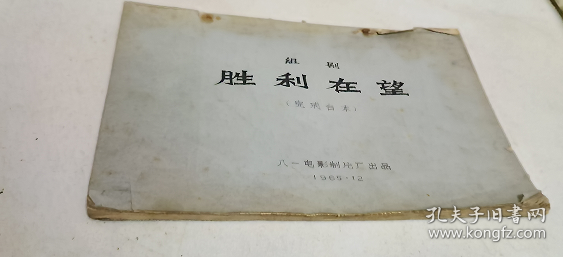 组剧
胜利在望
（完成台本）
八一电影制片厂出品
1965·12
孔夫子旧书网
www.kongfz.com